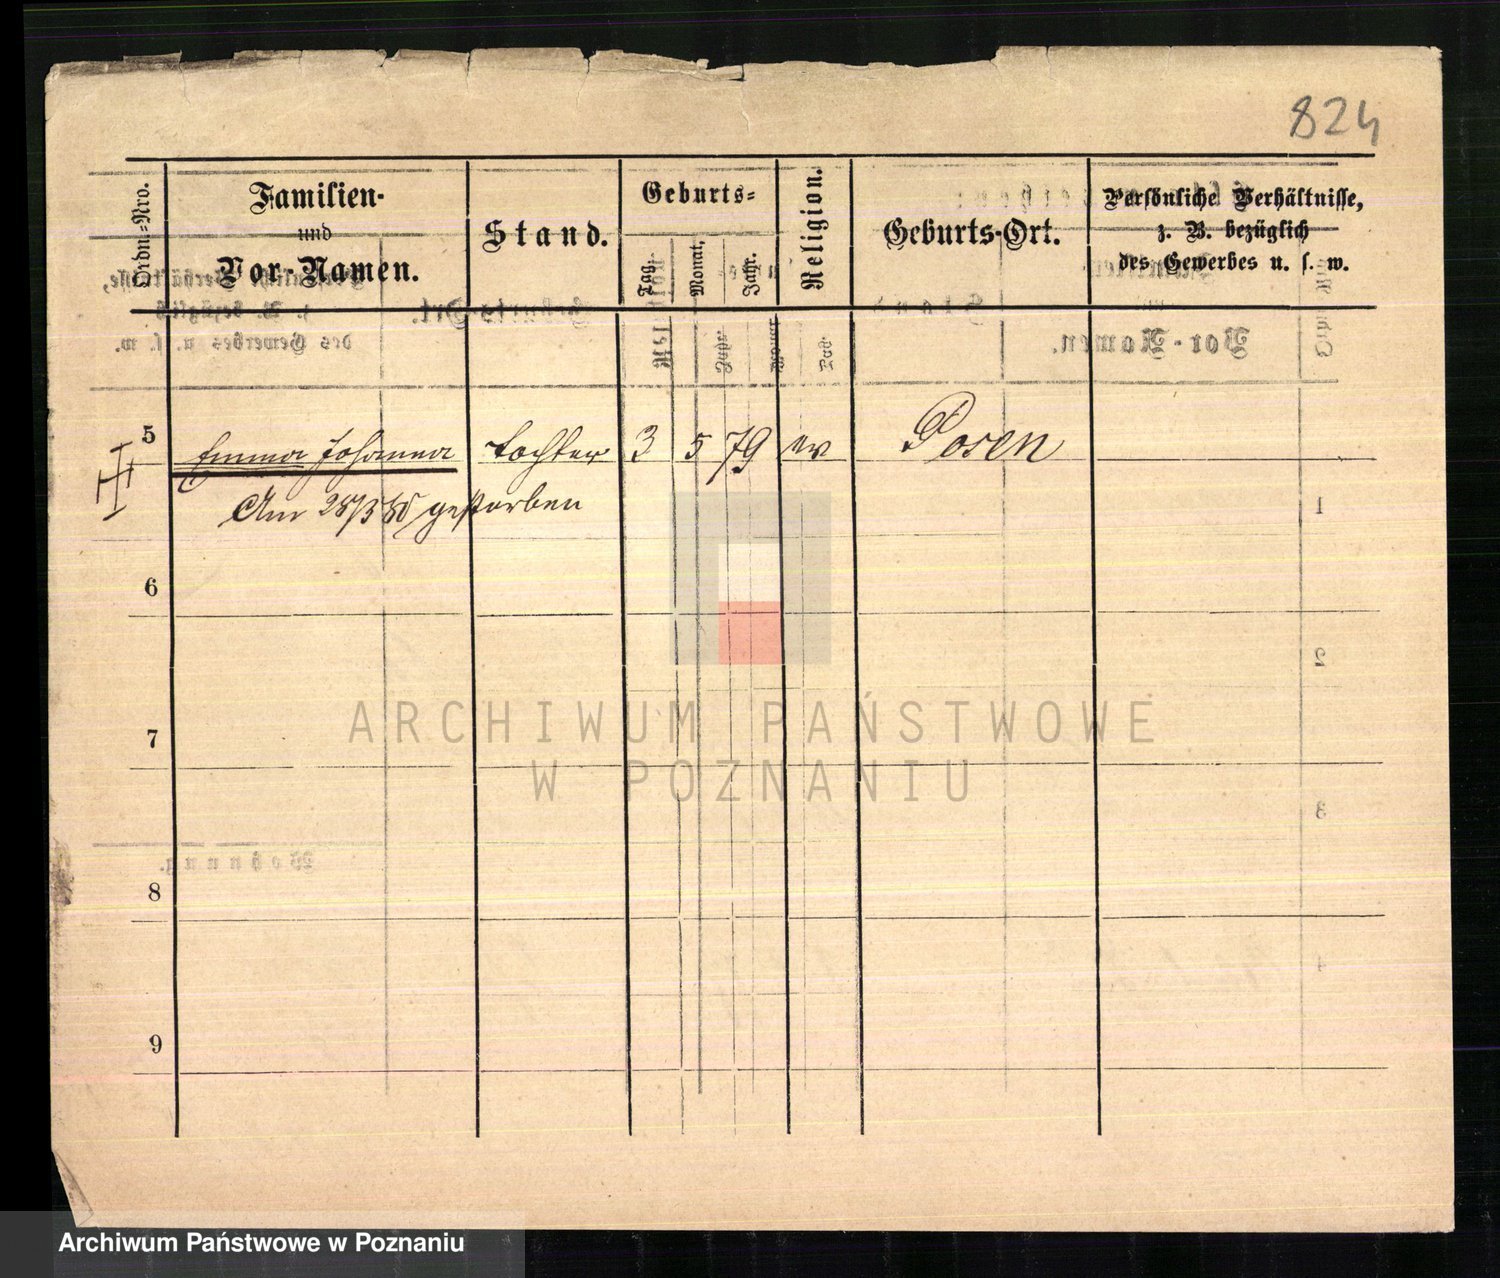 824
Ordn.-Nro.
Familien-
und
Vor-Namen.
Stand.
Geburts-
Tag.
Monat.
Jahr.
Religion.
Geburts-Ort.
Persönliche Verhältnisse,
z. B. bezüglich
des Gewerbes u. s. w.
5 Emma Johanna Tochter 3 5 79 ev Posen
Am gestorben
6
7
8
9
ARCHIWUM PAŃSTWOWE
W POZNANIU
Archiwum Państwowe w Poznaniu